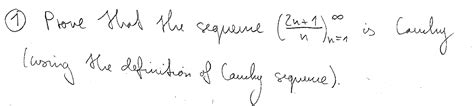 ① Prove that the sequence (2n+1/n)_{n=1}^∞ is Cauchy
(using the definition of Cauchy sequence).